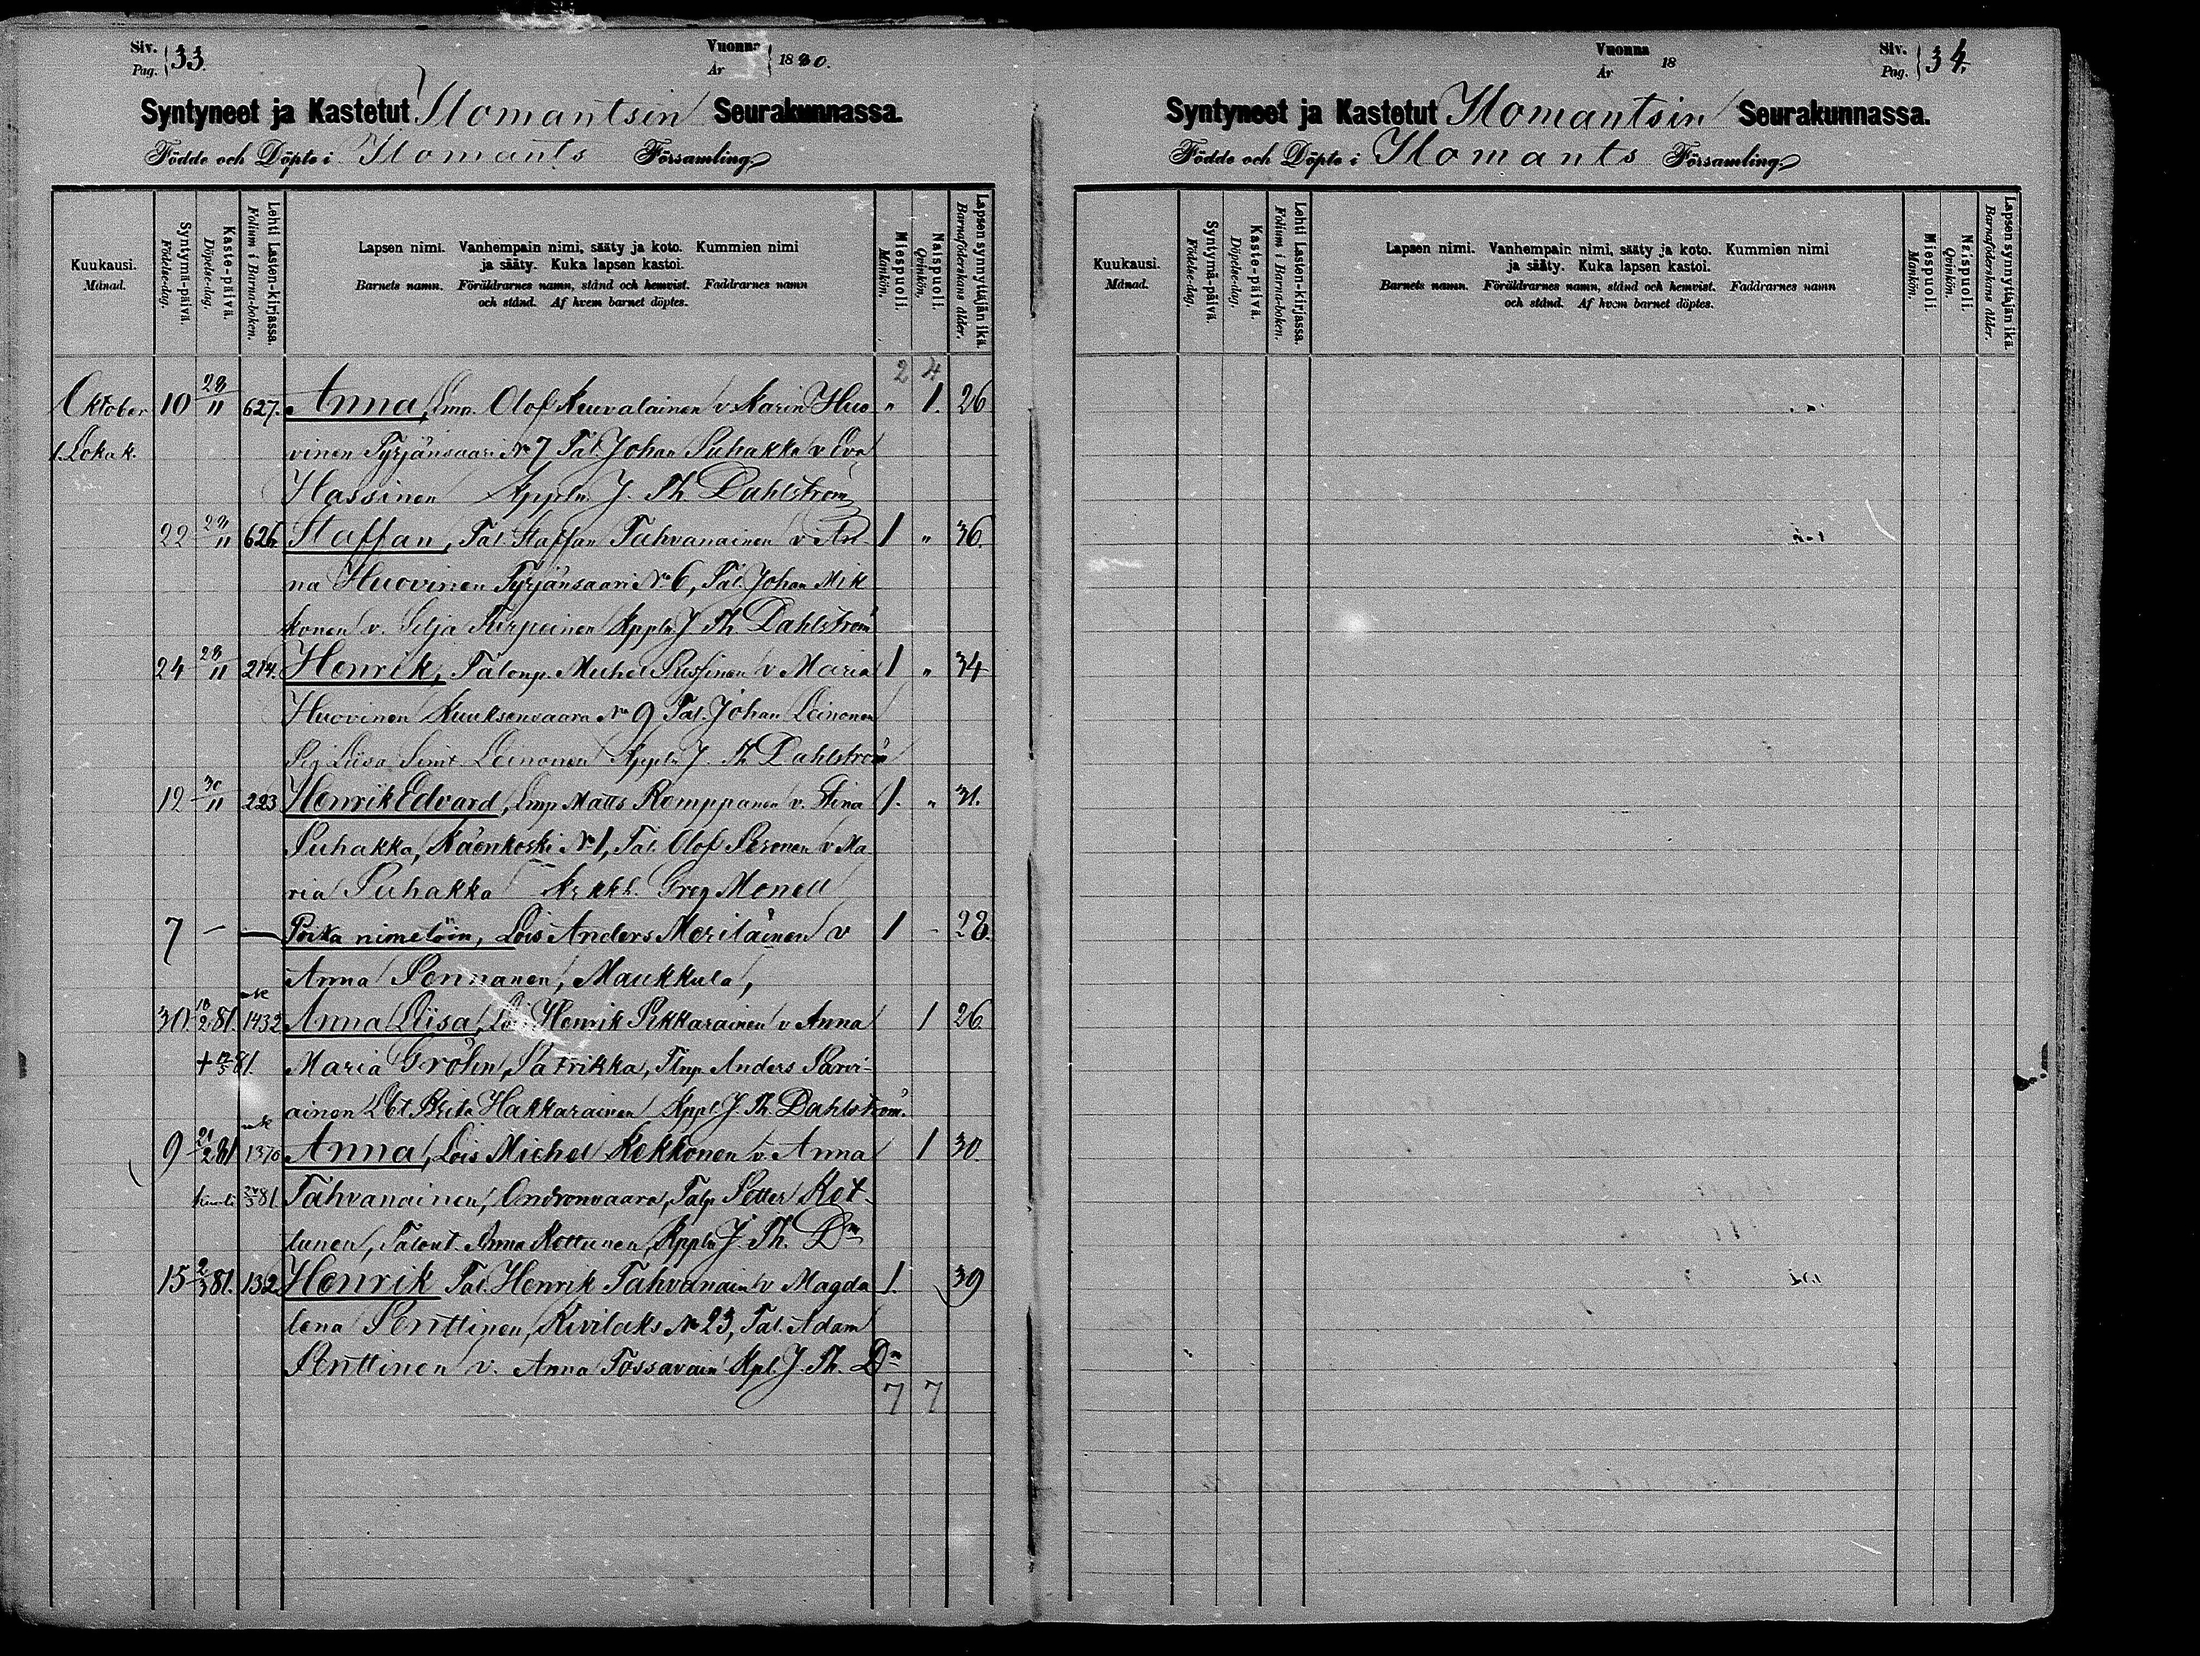 Siv. Pag. 33. Vuonna År 1880.
Syntyneet ja Kastetut Ilomantsin Seurakunnassa.
Födde och Döpte i Ilomants Församling.
Kuukausi. Månad.
Syntymä-päivä. Födelse-dag.
Kaste-päivä. Döpelse-dag.
Lehti Lasten-kirjassa. Folium i Barna-boken.
Lapsen nimi. Vanhempain nimi, sääty ja koto. Kummien nimi
ja sääty. Kuka lapsen kastoi.
Barnets namn. Föräldrarnes namn, stånd och hemvist. Faddrarnes namn
och stånd. Af hvem barnet döptes.
Miespuoli. Mankön.
Naispuoli. Qvinkön.
Lapsen synnyttäjän ikä. Barnaföderskans ålder.
2 4
Oktober 10 28/11 627. Anna, Lmp. Olof Kuvalainen v. Karin Huo " 1. 26
l. Lokak. vinen Tyrjänsaari No 7 Tal. Johan Puhakka v Eva
Hassinen Kappln J. Th. Dahlström
22 28/11 626 Staffan, Tal. Staffan Tahvanainen v. An 1 " 36.
na Huovinen Tyrjänsaari No 6, Tal. Johan Mik
konen v. Selja Turpeinen Kappln J Th Dahlström
24 28/11 214. Henrik, Talonp. Michel Pussinen v Maria 1 " 34
Huovinen Kuuksenvaara No 9 Tal. Johan Leinonen
Liisa Leinonen Kappln J. Th Dahlström
12 30/11 223 Henrik Edvard, Lmp Matts Romppanen v. Stina 1. " 31.
Puhakka, Käenkoski No 1, Tal. Olof Piironen v Ma
ria Puhakka Krkkh. Greg Monell
7 — — Poika nimetöin, Lois Anders Meriläinen v 1 - 28.
Anna Pennanen, Maukkula,
30 18/2 81. 1432 Anna Liisa, Lois Henrik Pekkarainen v Anna 1 26
+ 81. Maria Gröhn, Patrikka, Tlnp. Anders Parvi-
ainen Lbt Brita Hakkarainen Kppl J. Th. Dahlström.
9 21/2 81 1370 Anna, Lois Michel Kekkonen v. Anna 1 30.
81. Tahvanainen, Ondronvaara, Talp Petter Rot-
tunen, Talont. Anna Rottunen, Kappln J. Th. Dm
15 2/3 81. 132 Henrik Tal. Henrik Tahvanain v Magda 1. 39
lena Penttinen, Kivilaks No 23, Tal. Adam
Penttinen v. Anna Tossavain Kpl. J. Th. Dm
7 7
Vuonna År 18 Siv. Pag. 34.
Syntyneet ja Kastetut Ilomantsin Seurakunnassa.
Födde och Döpte i Ilomants Församling.
Kuukausi. Månad.
Syntymä-päivä. Födelse-dag.
Kaste-päivä. Döpelse-dag.
Lehti Lasten-kirjassa. Folium i Barna-boken.
Lapsen nimi. Vanhempain nimi, sääty ja koto. Kummien nimi
ja sääty. Kuka lapsen kastoi.
Barnets namn. Föräldrarnes namn, stånd och hemvist. Faddrarnes namn
och stånd. Af hvem barnet döptes.
Miespuoli. Mankön.
Naispuoli. Qvinkön.
Lapsen synnyttäjän ikä. Barnaföderskans ålder.